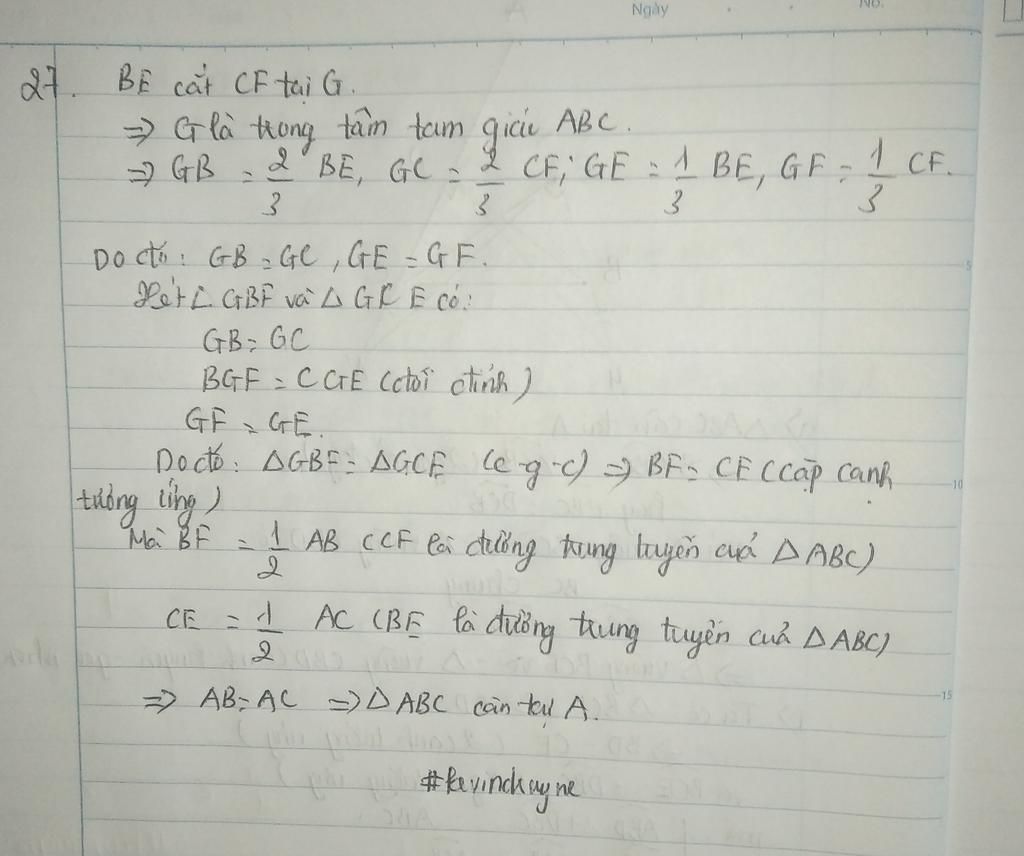 Ngày No.
27. BE cắt CF tại G.
=> G là trong tâm tam giác ABC.
=> GB = 2/3 BE, GC = 2/3 CF; GE = 1/3 BE, GF = 1/3 CF.
Do đó: GB = GC, GE = GF.
Xét △ GBF và △ GCE có:
GB = GC
BGF = CGE (đối đỉnh)
GF = GE.
Do đó: △GBF = △GCE (c-g-c) => BF = CE (cặp cạnh
tương ứng)
Mà BF = 1/2 AB (CF là đường trung tuyến của △ ABC)
CE = 1/2 AC (BE là đường trung tuyến của △ ABC)
=> AB = AC => △ ABC cân tại A.
#kevinchayne
5
10
15